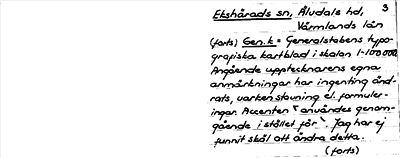 3
Ekshärads sn, Älvdals hd,
Värmlands län
(forts) Gen.k = Generalstabens typo-
grafiska kartblad i skalan 1-100.000.
Angående upptecknarens egna
anmärkningar har ingenting änd-
rats, varken stavning el. formuler-
ingar. Accenten ` användes genom-
gående i stället för ´. Jag har ej
funnit skäl att ändra detta.
(forts)